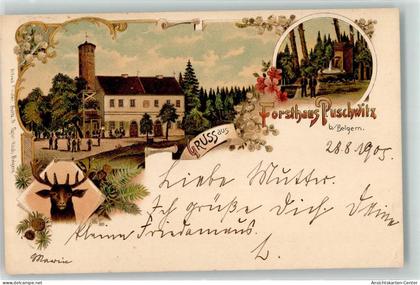 Gruss aus
Forsthaus Puschwitz
b/Belgern.
28.8.1905
Liebe Mutter.
Ich grüße Dich, Deine
kleine Friedemaus.
L.
Marie
Ansichtskarten-Center